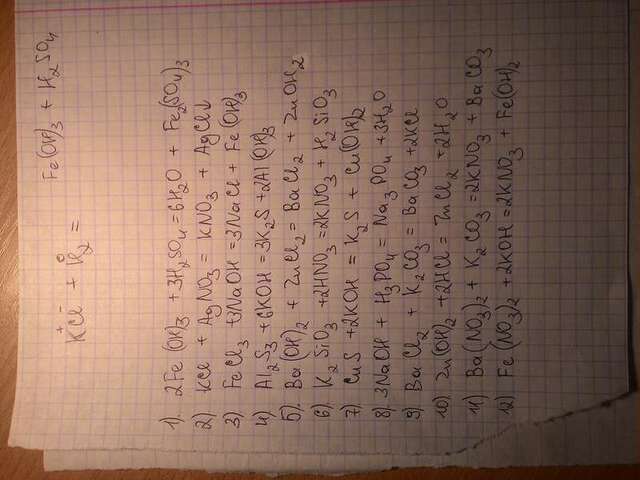 Fe(OH)3 + H2SO4
K⁺Cl⁻ + H2⁰ =
1). 2Fe(OH)3 + 3H2SO4 = 6H2O + Fe2(SO4)3
2) KCl + AgNO3 = KNO3 + AgCl↓
3) FeCl3 + 3NaOH = 3NaCl + Fe(OH)3
4) Al2S3 + 6KOH = 3K2S + 2Al(OH)3
5) Ba(OH)2 + ZnCl2 = BaCl2 + ZnOH2
6) K2SiO3 + 2HNO3 = 2KNO3 + H2SiO3
7) CuS + 2KOH = K2S + Cu(OH)2
8) 3NaOH + H3PO4 = Na3PO4 + 3H2O
9) BaCl2 + K2CO3 = BaCO3 + 2KCl
10) Zn(OH)2 + 2HCl = ZnCl2 + 2H2O
11) Ba(NO3)2 + K2CO3 = 2KNO3 + BaCO3
12) Fe(NO3)2 + 2KOH = 2KNO3 + Fe(OH)2